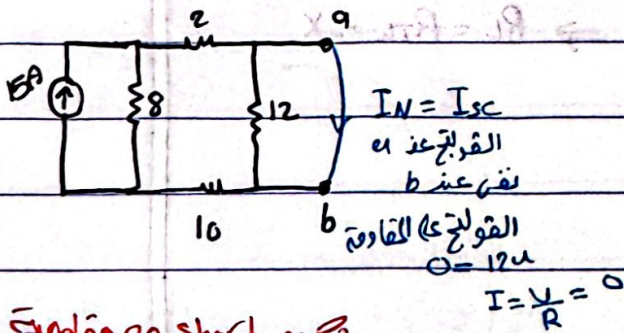 2
a
15A
8
12
I_N = I_SC
الفولتج عند a
نفس عند b
10
b
الفولتج على المقاومة
0 = 12 الـ
I = V/R = 0